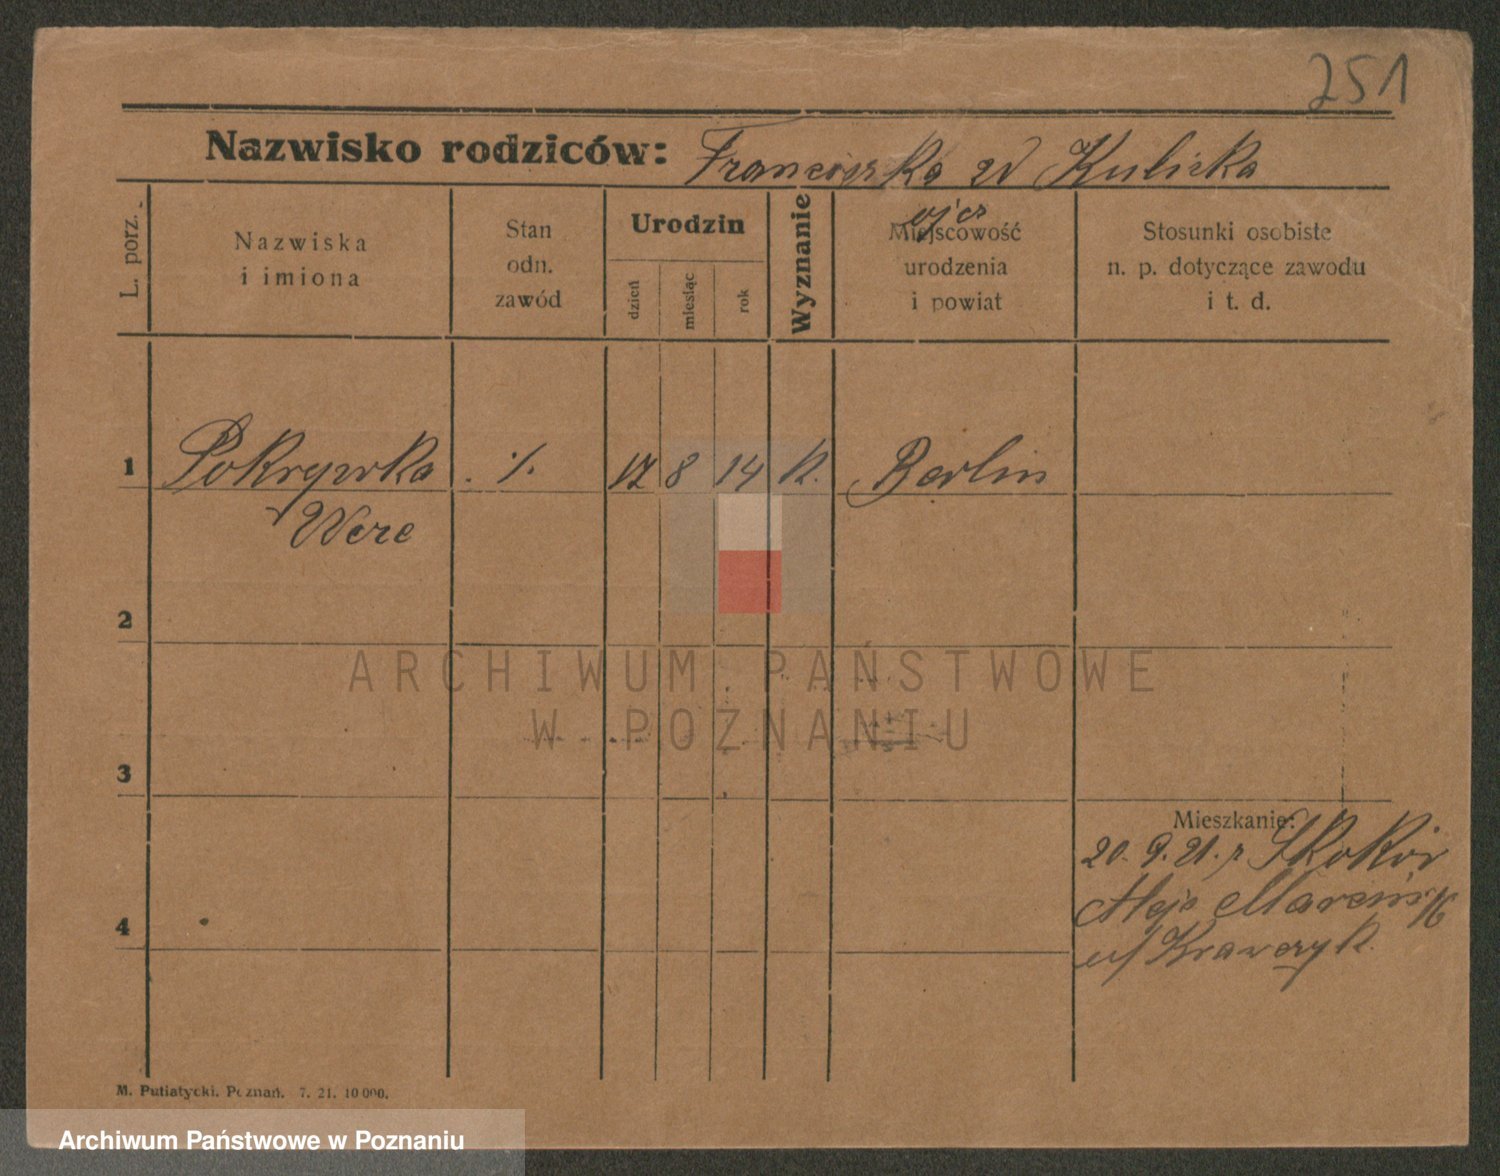 251
Nazwisko rodziców: Franciszka w Kulicka
ojca
L. porz.
Nazwiska
i imiona
Stan
odn.
zawód
Urodzin
dzień
miesiąc
rok
Wyznanie
Miejscowość
urodzenia
i powiat
Stosunki osobiste
n. p. dotyczące zawodu
i t. d.
1 Pokrywka ./. 17 8 14 k. Berlin
Were
2
ARCHIWUM PAŃSTWOWE
W POZNANIU
3
Mieszkanie:
20. 9. 21. z Skoków
4
Aleje Marcink
u/ Krawczyk.
M. Putiatycki. Poznań. 7. 21. 10 000.
Archiwum Państwowe w Poznaniu